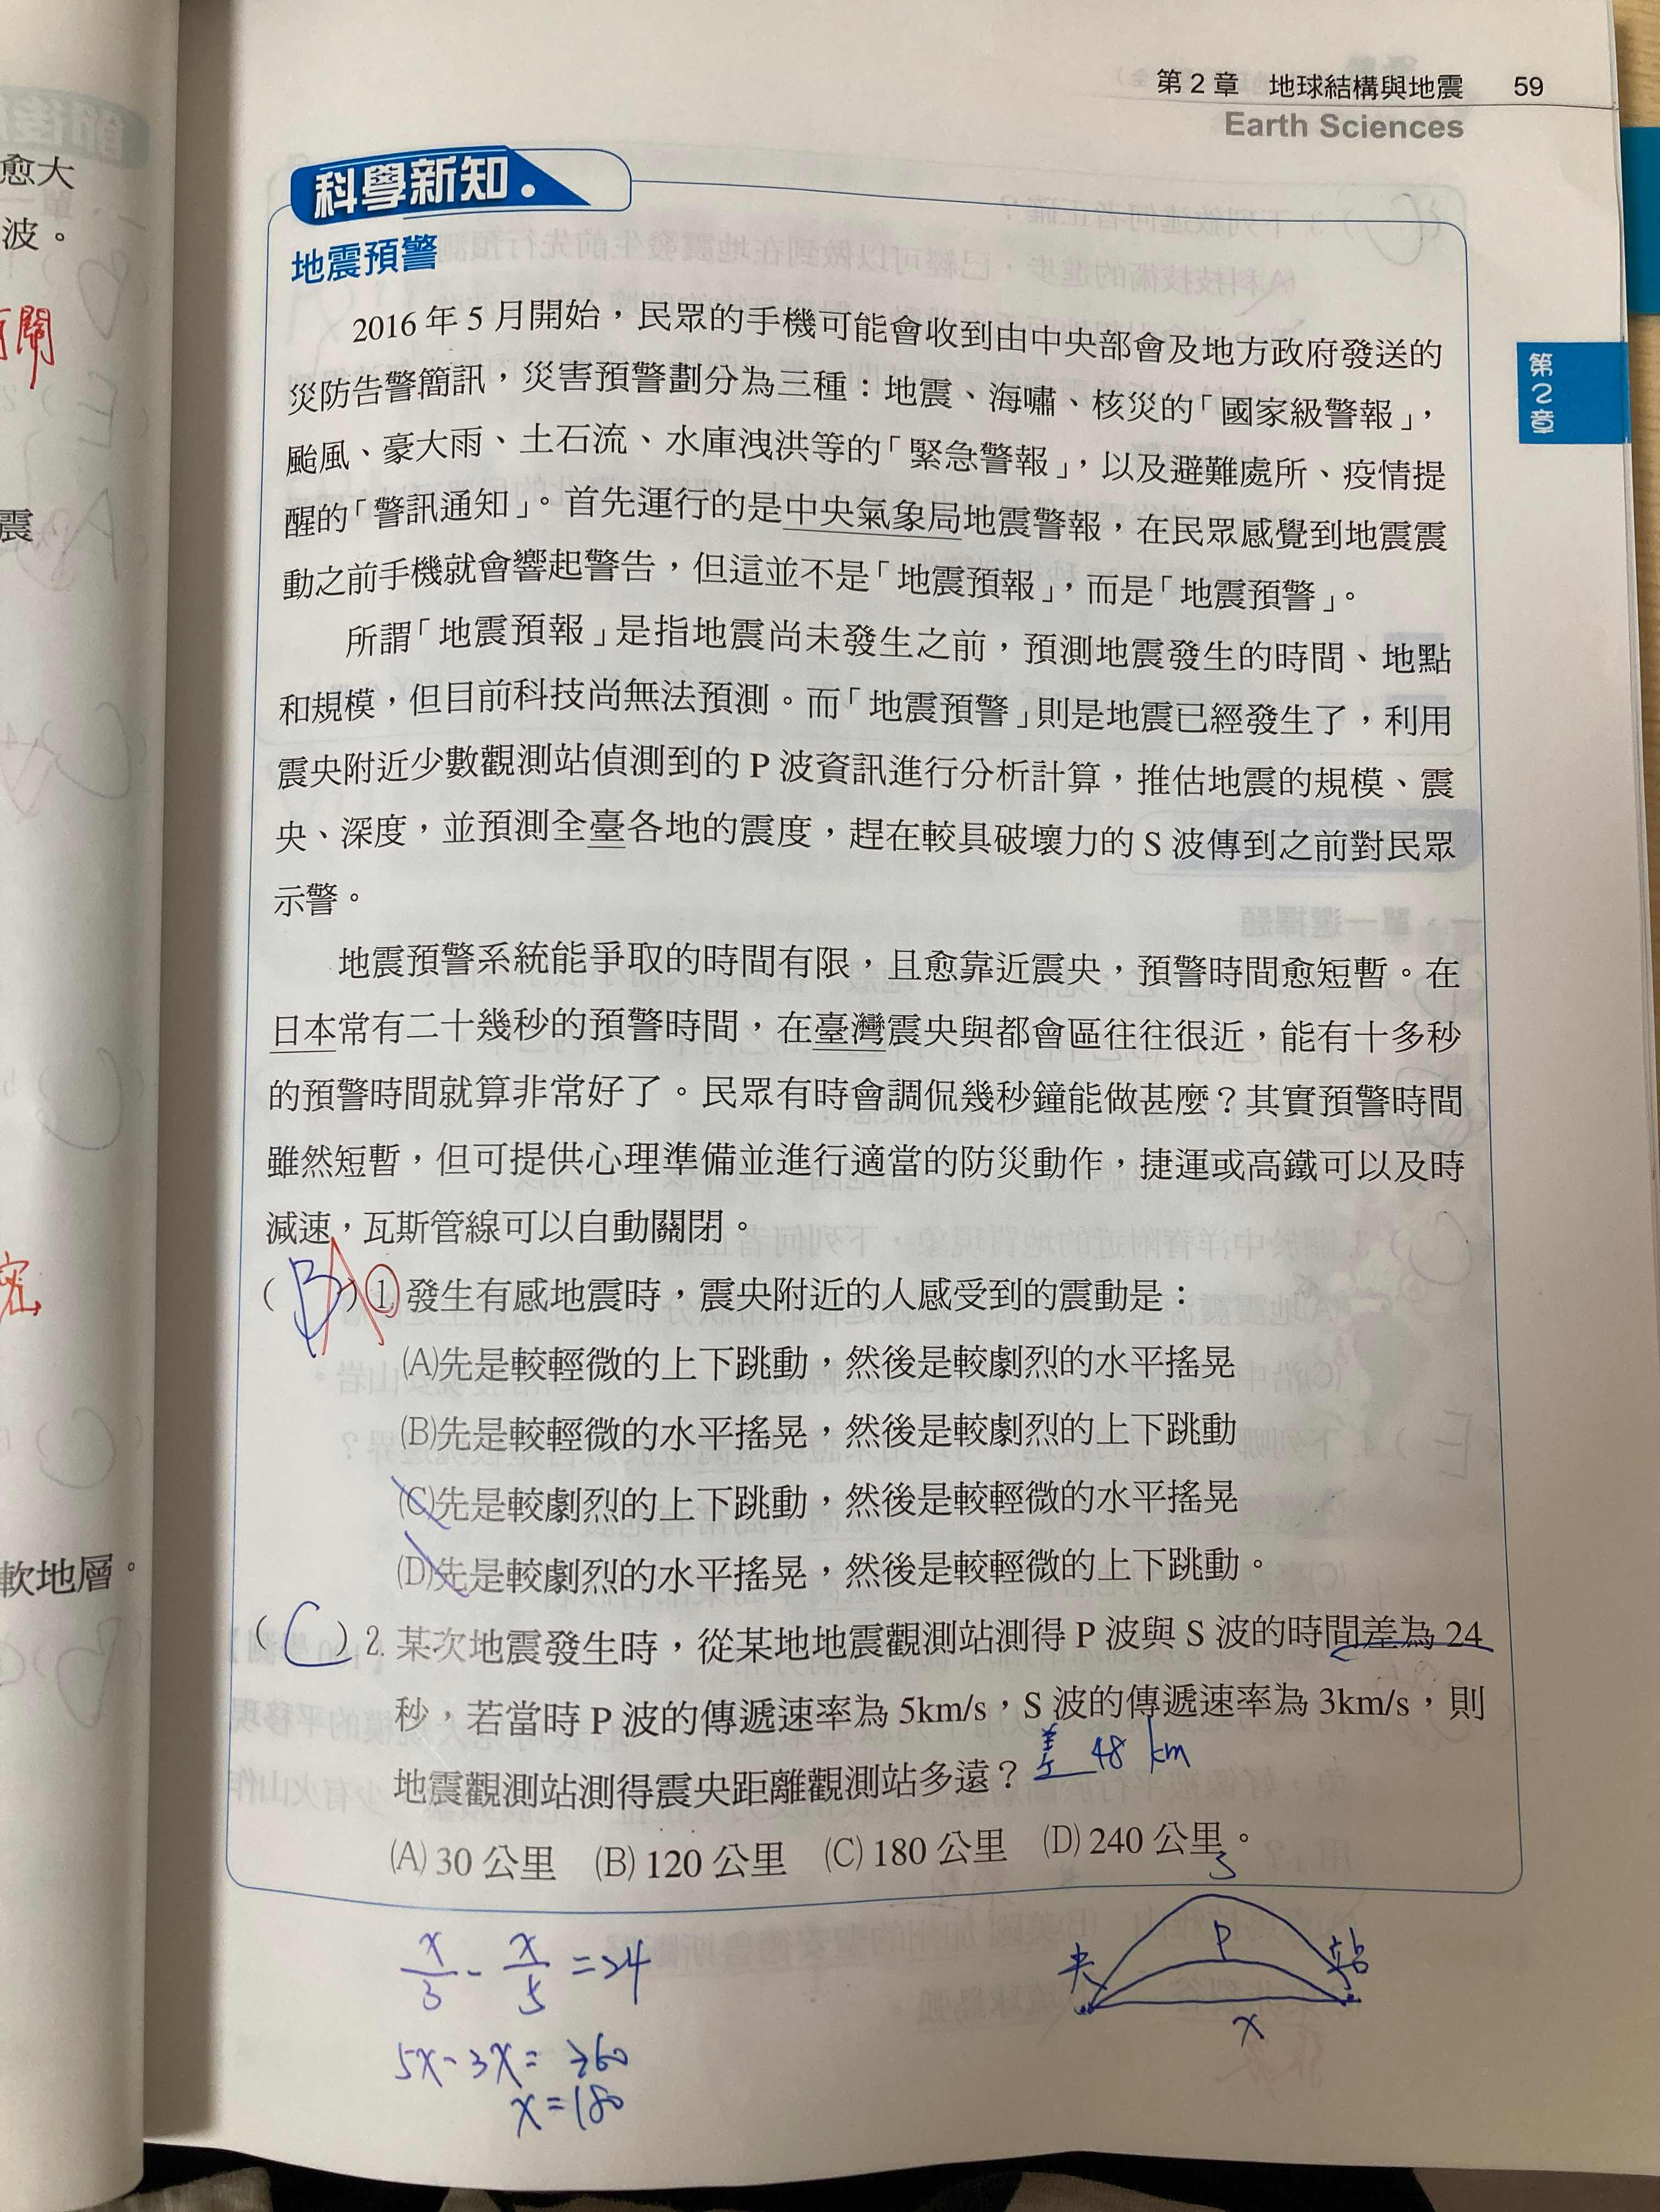 第 2 章　地球結構與地震　59
Earth Sciences
科學新知
地震預警
2016 年 5 月開始，民眾的手機可能會收到由中央部會及地方政府發送的
災防告警簡訊，災害預警劃分為三種：地震、海嘯、核災的「國家級警報」，
颱風、豪大雨、土石流、水庫洩洪等的「緊急警報」，以及避難處所、疫情提
醒的「警訊通知」。首先運行的是中央氣象局地震警報，在民眾感覺到地震震
動之前手機就會響起警告，但這並不是「地震預報」，而是「地震預警」。
所謂「地震預報」是指地震尚未發生之前，預測地震發生的時間、地點
和規模，但目前科技尚無法預測。而「地震預警」則是地震已經發生了，利用
震央附近少數觀測站偵測到的 P 波資訊進行分析計算，推估地震的規模、震
央、深度，並預測全臺各地的震度，趕在較具破壞力的 S 波傳到之前對民眾
示警。
地震預警系統能爭取的時間有限，且愈靠近震央，預警時間愈短暫。在
日本常有二十幾秒的預警時間，在臺灣震央與都會區往往很近，能有十多秒
的預警時間就算非常好了。民眾有時會調侃幾秒鐘能做甚麼？其實預警時間
雖然短暫，但可提供心理準備並進行適當的防災動作，捷運或高鐵可以及時
減速，瓦斯管線可以自動關閉。
( B ) A 1. 發生有感地震時，震央附近的人感受到的震動是：
(A)先是較輕微的上下跳動，然後是較劇烈的水平搖晃
(B)先是較輕微的水平搖晃，然後是較劇烈的上下跳動
(C)先是較劇烈的上下跳動，然後是較輕微的水平搖晃
(D)先是較劇烈的水平搖晃，然後是較輕微的上下跳動。
( C ) 2. 某次地震發生時，從某地地震觀測站測得 P 波與 S 波的時間差為 24
秒，若當時 P 波的傳遞速率為 5km/s，S 波的傳遞速率為 3km/s，則
地震觀測站測得震央距離觀測站多遠？ 差 48 km
(A) 30 公里　(B) 120 公里　(C) 180 公里　(D) 240 公里。
x/3 - x/5 = 24
5x - 3x = 360
x = 180
S
P
央
站
x
第2章
愈大
波。
震
軟地層。